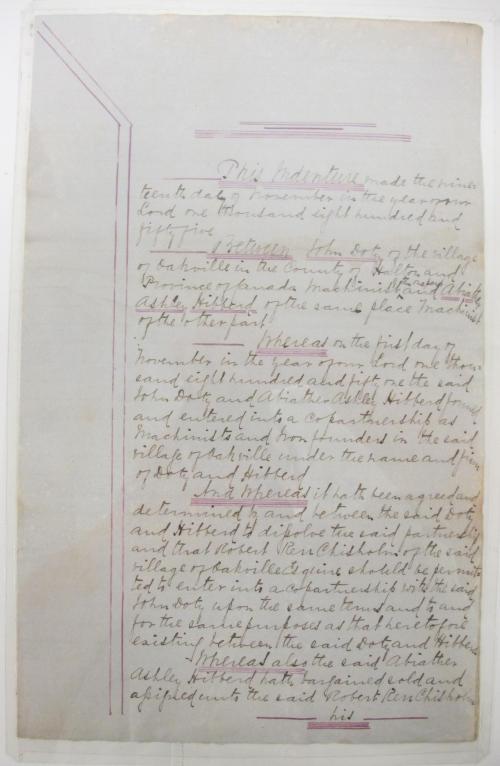 This Indenture made the nine
teenth day of November in the year of our
Lord one thousand eight hundred and
fifty five
Between John Doty of the village
of Oakville in the County of Halton and
Province of Canada Machinist and Abiather
Ashley Hibberd of the same place Machinist
of the other part
Whereas on the first day of
November in the year of our Lord one thou
sand eight hundred and fifty one the said
John Doty and Abiather Ashley Hibberd formed
and entered into a copartnership as
Machinists and Iron founders in the said
village of Oakville under the name and firm
of Doty and Hibberd
And Whereas it hath been agreed and
determined by and between the said Doty
and Hibberd to dissolve the said partnership
and that Robert Ken Chisholm of the said
village of Oakville Esquire should be permit
ted to enter into a copartnership with the said
John Doty upon the same terms and to and
for the same purposes as that heretofore
existing between the said Doty and Hibberd
Whereas also the said Abiather
Ashley Hibberd hath bargained sold and
assigned unto the said Robert Ken Chisholm
his